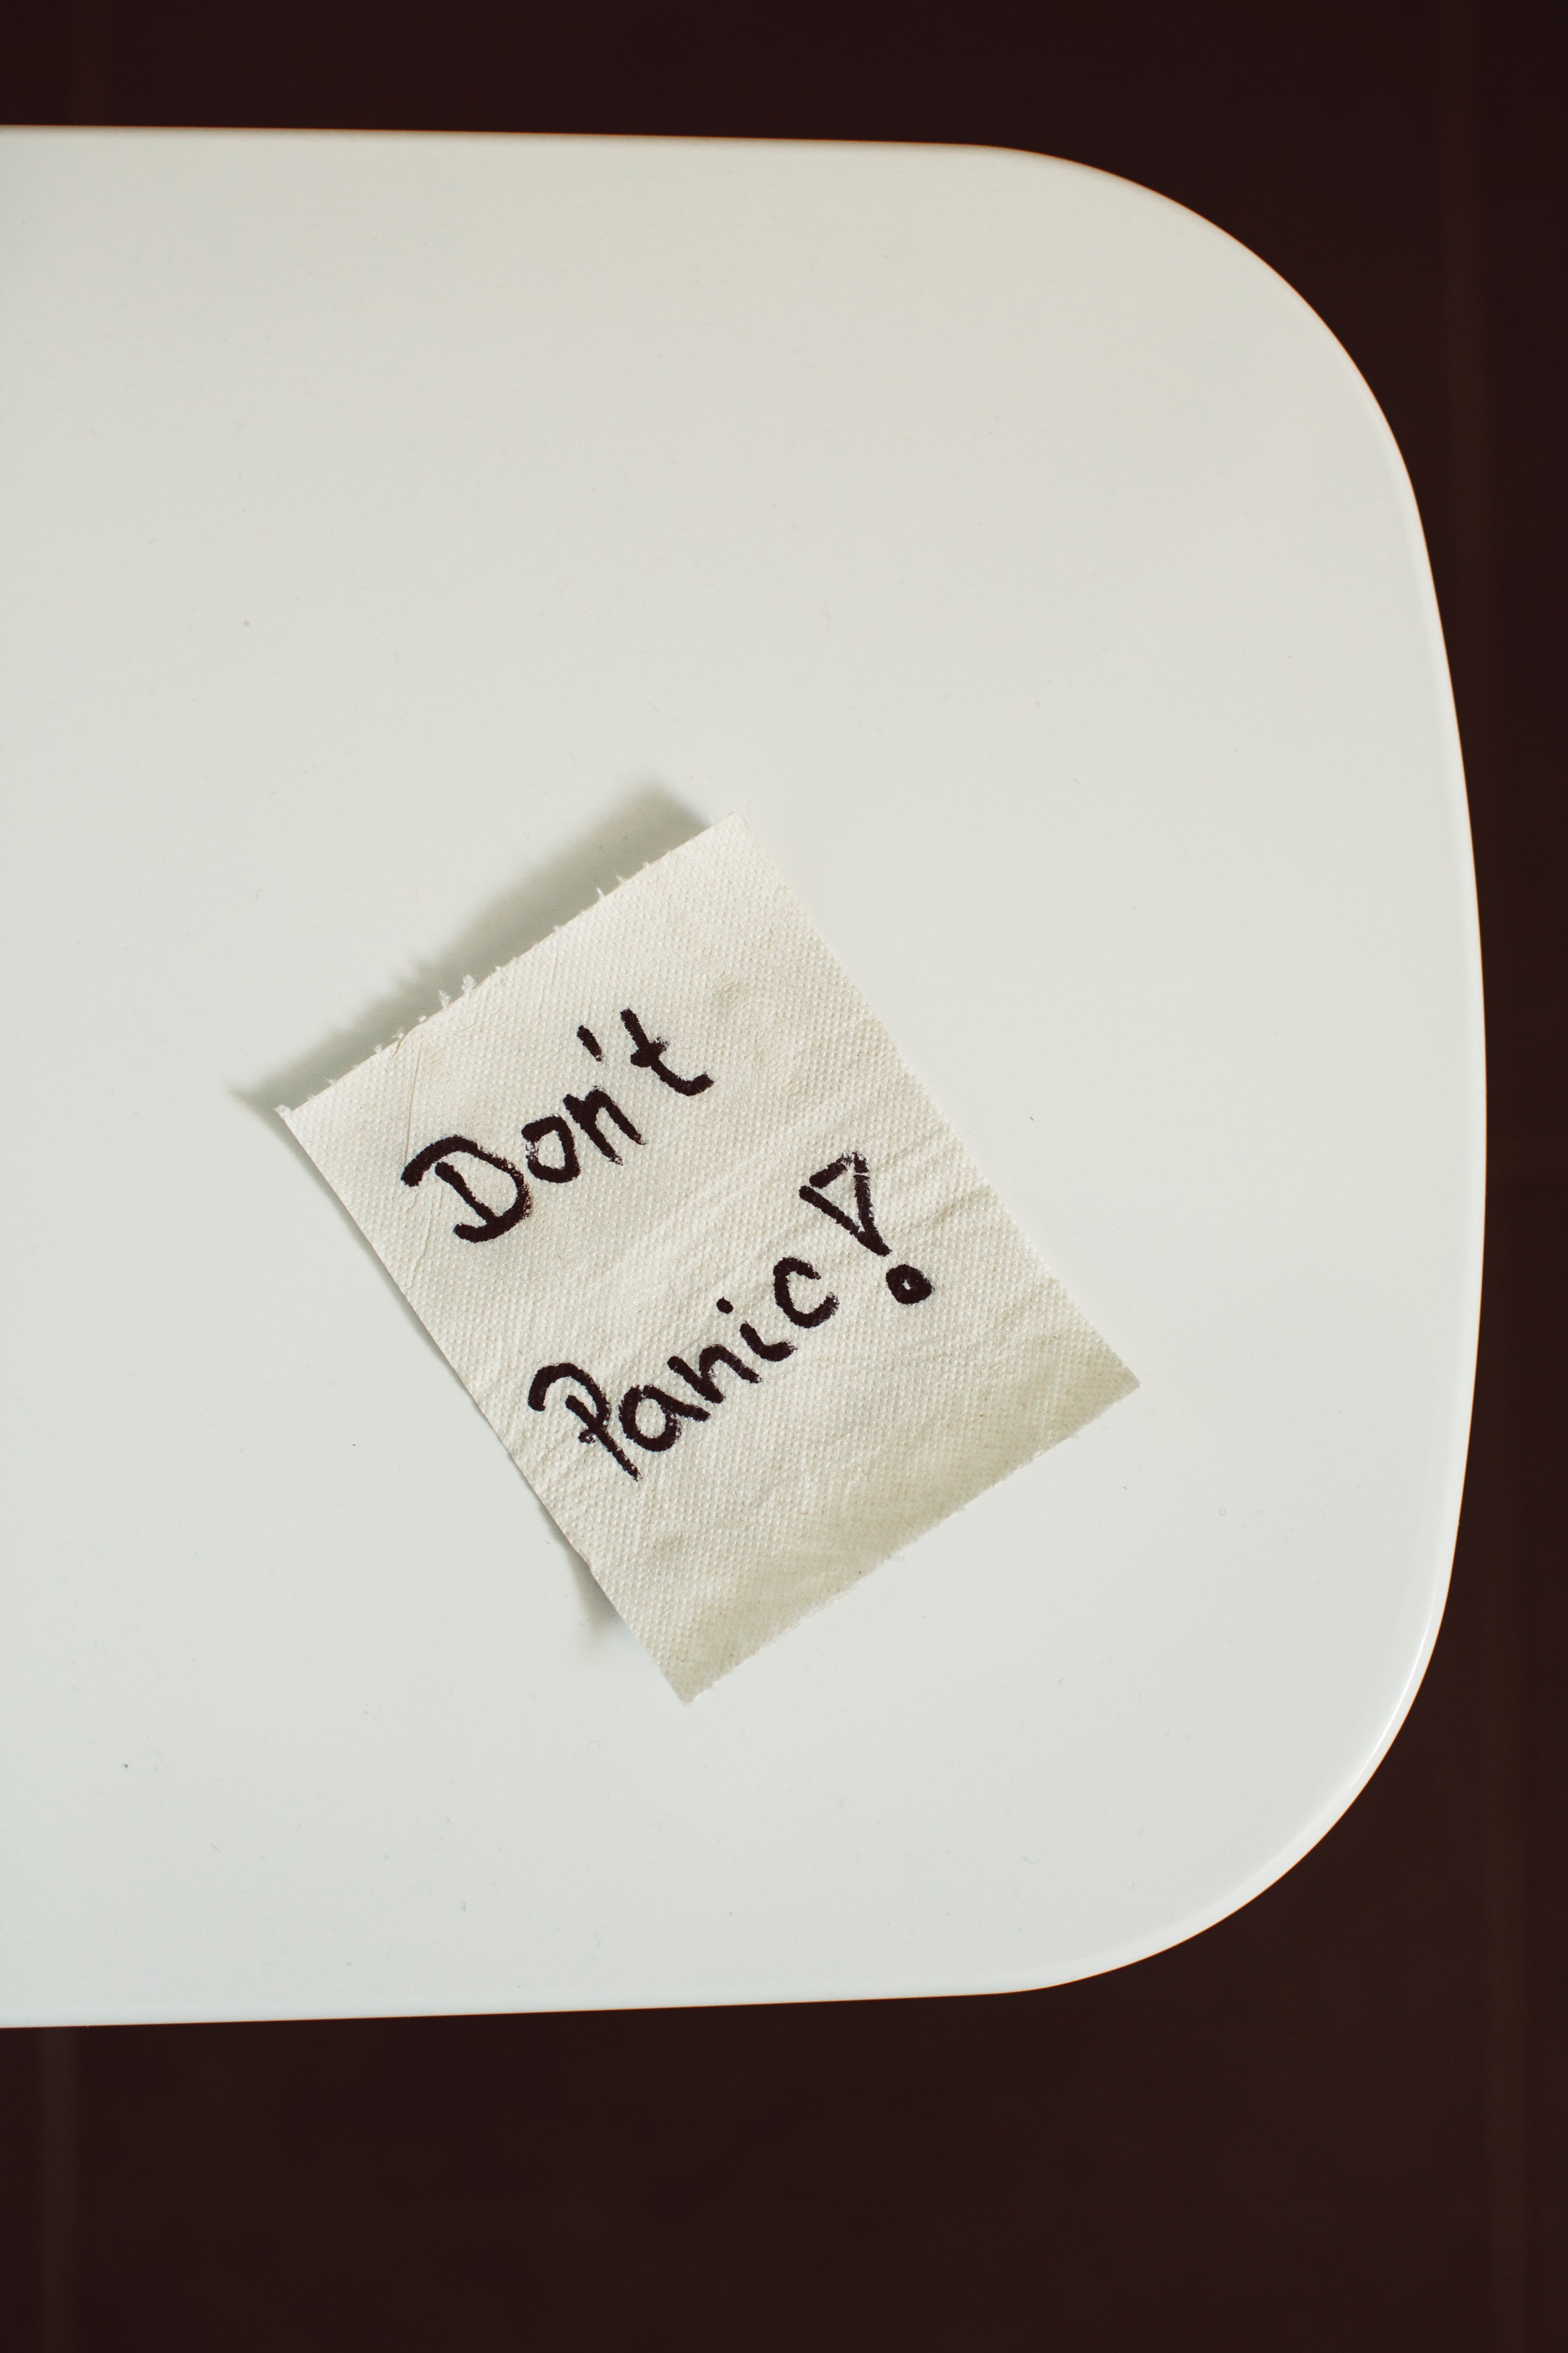 Don't
Panic!